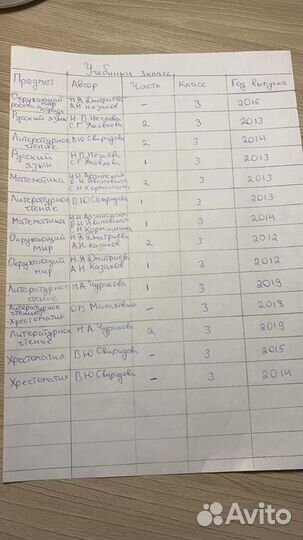 Учебники 3класс
Предмет Автор Часть Класс Год выпуска
Окружающий мир Н.Я Дмитриева – 3 2016
рабочая тетрадь А.Н. Казаков
Русский язык Н.В. Нечаева 2 3 2013
С.Г. Яковлева
Литературное В.Ю Свиридова 2 3 2014
чтение
Русский Н.В. Нечаева 1 3 2013
язык С.Г. Яковлева
Математика И.И Аргинская 2 3 2013
Е.И Ивановская
С.Н Кормишина
Литературное В.Ю Свиридова 1 3 2013
чтение
Математика И.И Аргинская 1 3 2014
Е.И Ивановская
С.Н Кормишина
Окружающий Н.Я Дмитриева 2 3 2012
мир А.Н. Казаков
Окружающий Н.Я Дмитриева 1 3 2012
мир А.Н Казаков
Литературное Н.А Чуракова 1 3 2019
чтение
Литературное О.В. Малаховская – 3 2018
чтение
Хрестоматия
Литературное Н.А Чуракова 2 3 2019
чтение
Хрестоматия В.Ю Свиридова – 3 2015
Хрестоматия В.Ю Свиридова – 3 2014
Avito